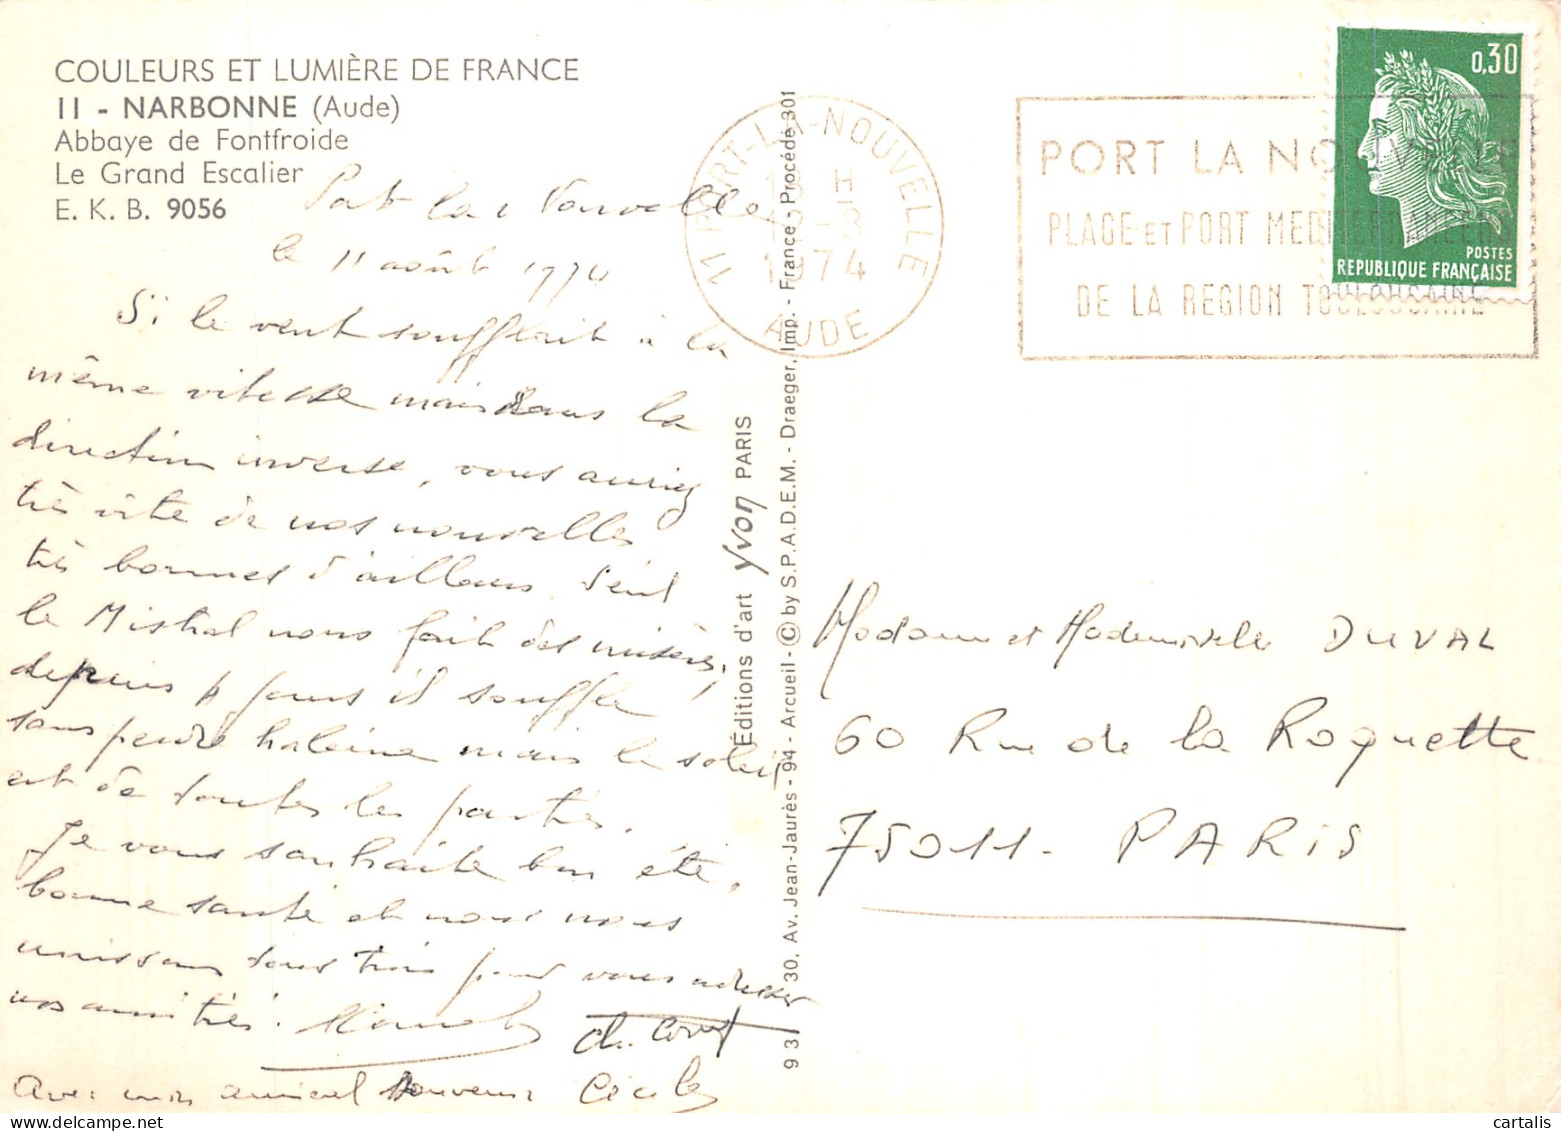 COULEURS ET LUMIÈRE DE FRANCE
11 - NARBONNE (Aude)
Abbaye de Fontfroide
Le Grand Escalier
E. K. B. 9056
Port la Nouvelle
le 11 août 1974
Si le vent soufflait à la
même vitesse mais dans la
direction inverse, vous auriez
très vite de nos nouvelles
très bonnes d'ailleurs. Seul
le Mistral nous fait des misères,
depuis 4 jours il souffle
sans perdre haleine mais le soleil
est de toutes les parties.
Je vous souhaite bon été,
bonne santé et nous nous
unissons tous trois pour vous adresser
nos amitiés.
Avec mon amical souvenir Cécile
Éditions d'art yvon PARIS
9 3 30. Av. Jean-Jaurès - 94 - Arcueil - © by S.P.A.D.E.M. - Draeger, Imp. - France - Procédé 301
11 PORT-LA-NOUVELLE
H
-8
1974
AUDE
PORT LA NOUVELLE
PLAGE ET PORT MEDITERRANEEN
DE LA REGION TOULOUSAINE
0,30
POSTES
REPUBLIQUE FRANÇAISE
Madame et Mademoiselle DUVAL
60 Rue de la Roquette
75011. PARIS
cartalis